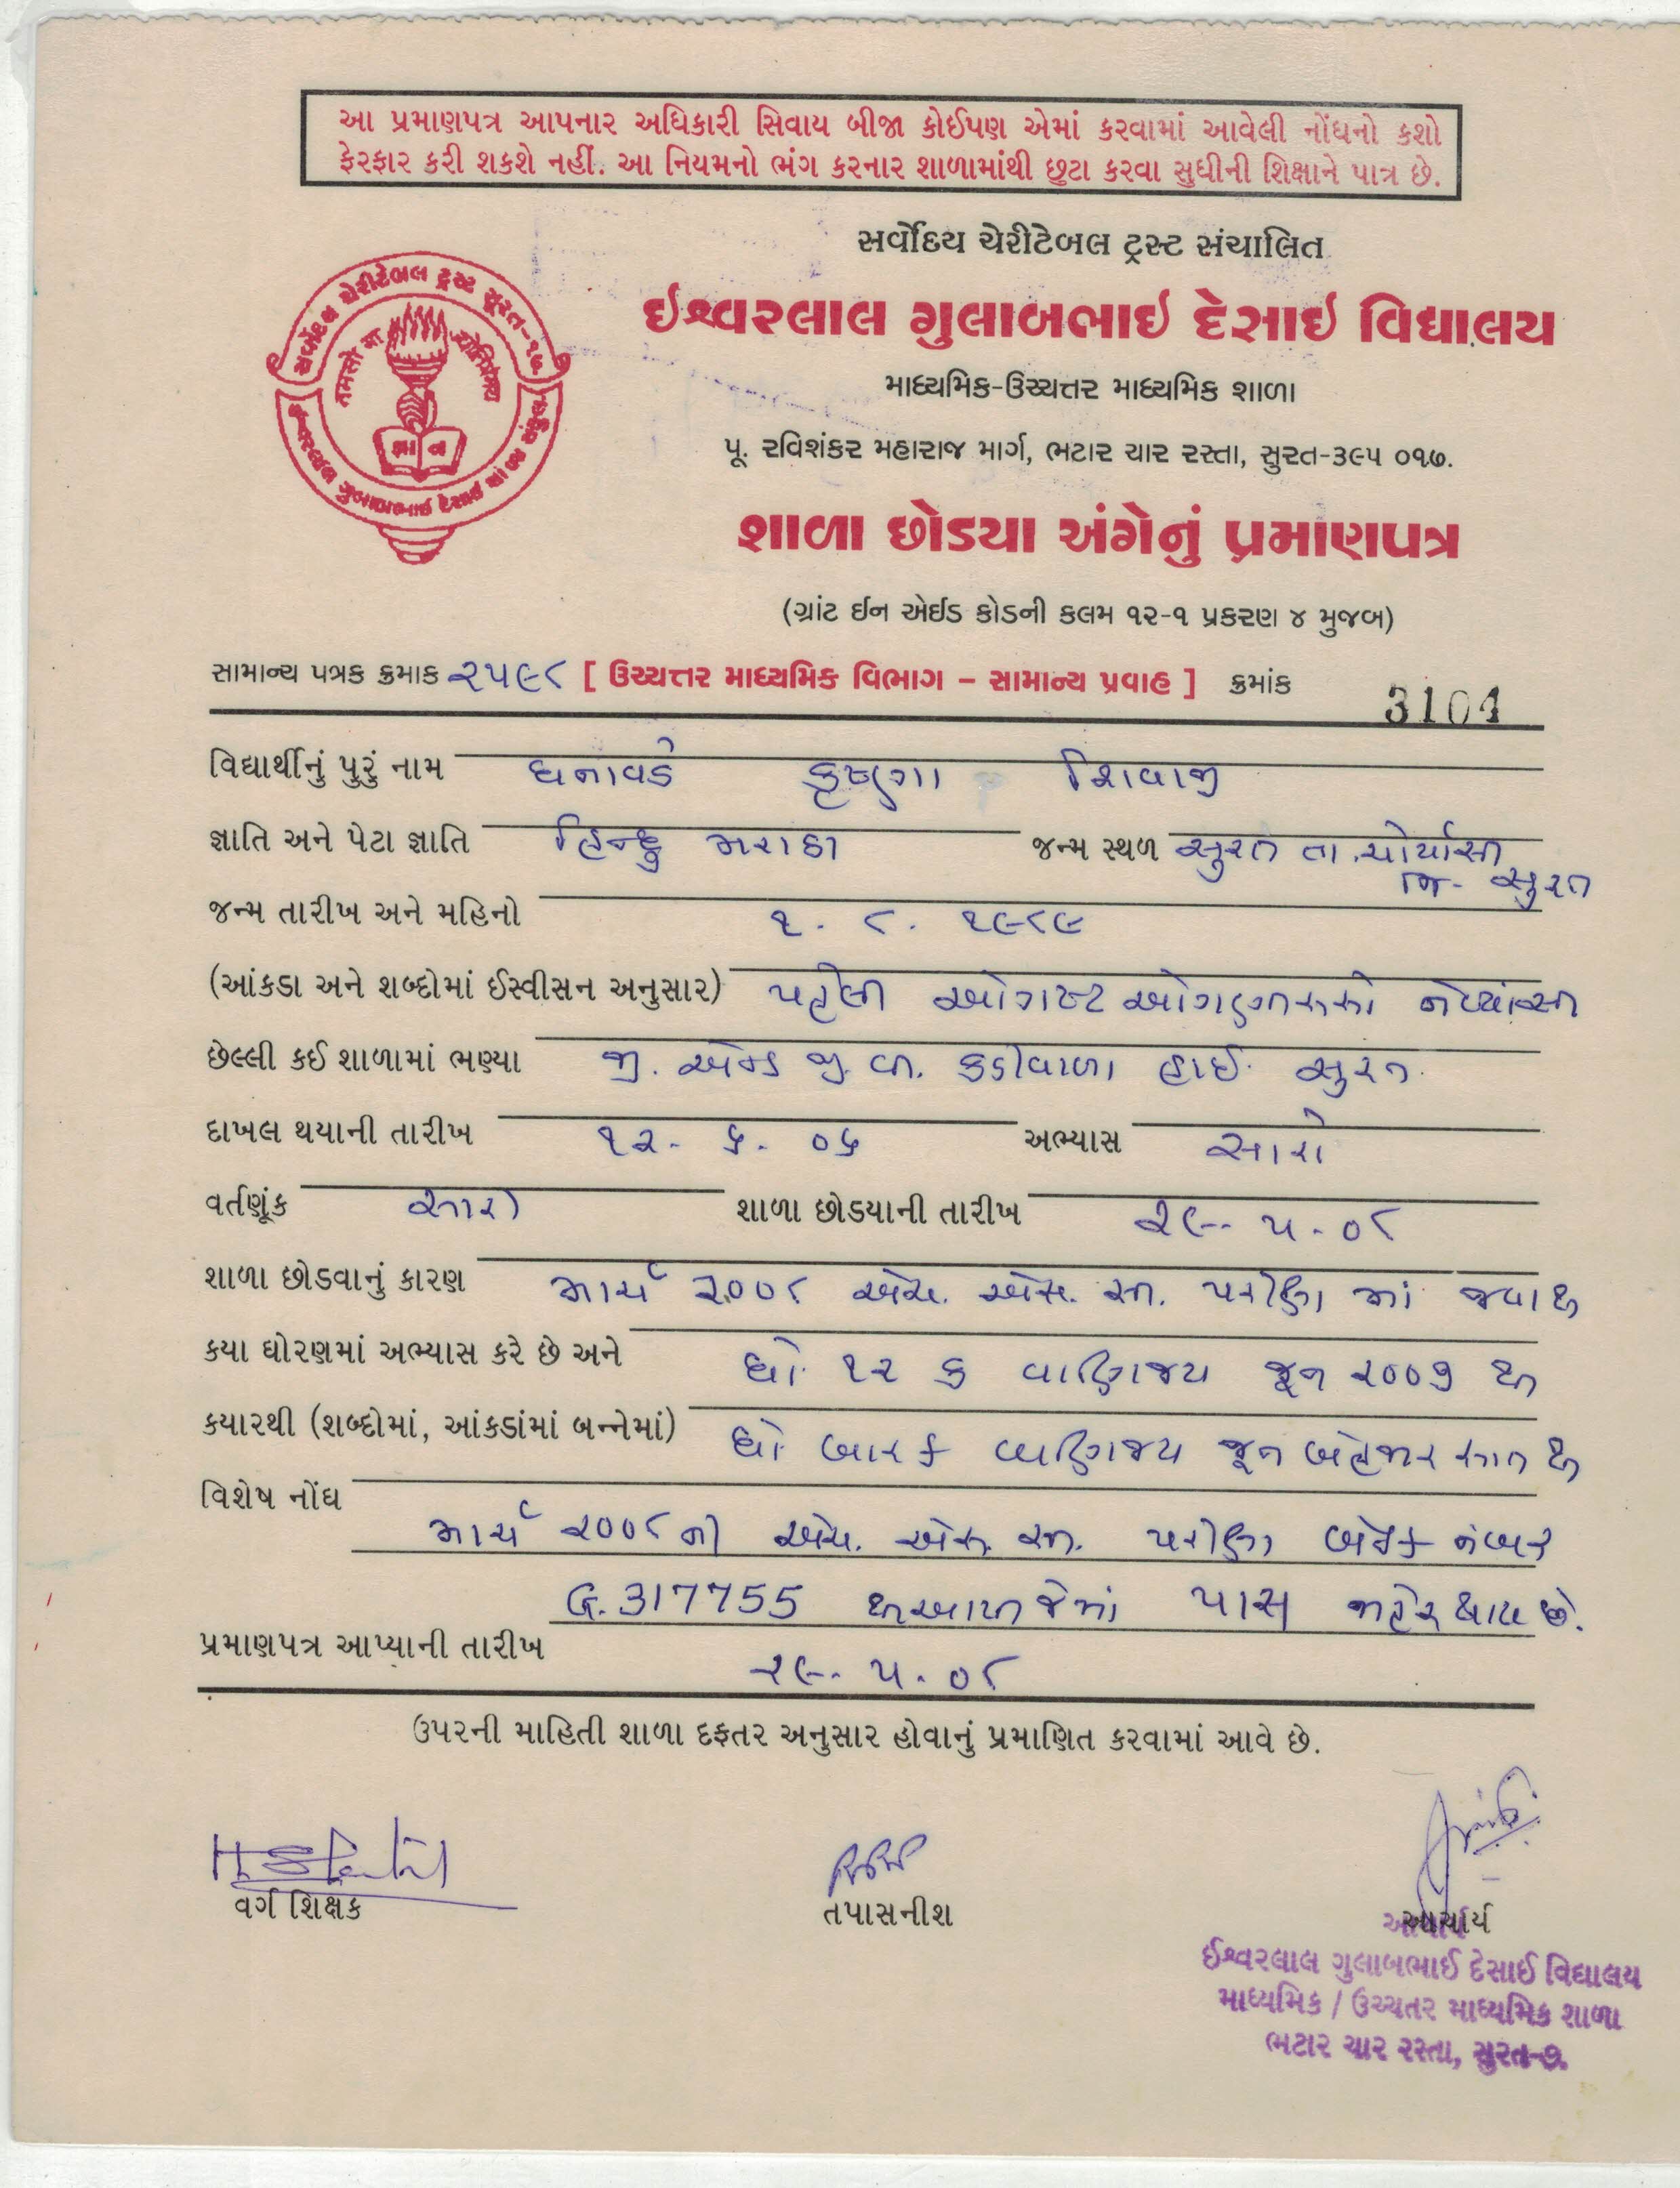 આ પ્રમાણપત્ર આપનાર અધિકારી સિવાય બીજા કોઈપણ એમાં કરવામાં આવેલી નોંધનો કશો
ફેરફાર કરી શકશે નહીં. આ નિયમનો ભંગ કરનાર શાળામાંથી છુટા કરવા સુધીની શિક્ષાને પાત્ર છે.
સર્વોદય ચેરીટેબલ ટ્રસ્ટ સંચાલિત
ઈશ્વરલાલ ગુલાબભાઈ દેસાઈ વિદ્યાલય
માધ્યમિક-ઉચ્ચત્તર માધ્યમિક શાળા
પૂ. રવિશંકર મહારાજ માર્ગ, ભટાર ચાર રસ્તા, સુરત-૩૯૫ ૦૧૭.
સર્વોદય ચેરીટેબલ ટ્રસ્ટ સૂરત-૧૭.
તમસો મા જ્યોતિર્ગમય
જ્ઞાન
ઈશ્વરલાલ ગુલાબભાઈ દેસાઈ
શાળા છોડયા અંગેનું પ્રમાણપત્ર
(ગ્રાંટ ઈન એઈડ કોડની કલમ ૧૨-૧ પ્રકરણ ૪ મુજબ)
સામાન્ય પત્રક ક્રમાક ૨૫૯૮ [ ઉચ્ચત્તર માધ્યમિક વિભાગ – સામાન્ય પ્રવાહ ] ક્રમાંક 3104
વિદ્યાર્થીનું પુરું નામ ઘનાવડે કૃષ્ણા શિવાજી
જ્ઞાતિ અને પેટા જ્ઞાતિ હિન્દુ મરાઠા જન્મ સ્થળ સુરત તા. ચોર્યાસી
જિ- સુરત
જન્મ તારીખ અને મહિનો ૧. ૮. ૧૯૮૯
(આંકડા અને શબ્દોમાં ઈસ્વીસન અનુસાર) પહેલી ઓગષ્ટ ઓગણીસસો નેવ્યાંસી
છેલ્લી કઈ શાળામાં ભણ્યા જી. એન્ડ જી. વી. કડીવાળા હાઈ. સુરત.
દાખલ થયાની તારીખ ૧૨- ૬. ૦૬ અભ્યાસ સારો
વર્તણૂંક સારી શાળા છોડયાની તારીખ ૨૯-. ૫. ૦૮
શાળા છોડવાનું કારણ માર્ચ ૨૦૦૮ એચ. એસ. સી. પરીક્ષા માં જવાથી
કયા ધોરણમાં અભ્યાસ કરે છે અને ધો. ૧૨ ક વાણિજ્ય જૂન ૨૦૦૭ થી
કયારથી (શબ્દોમાં, આંકડાંમાં બન્નેમાં) ધો. બાર ક વાણિજ્ય જૂન બેહજાર સાત થી
વિશેષ નોંધ
માર્ચ ૨૦૦૮ ની એચ. એસ. સી. પરીક્ષા બેઠક નંબર
G. 317755 થી આપી જેમાં પાસ જાહેર થાય છે.
પ્રમાણપત્ર આપ્યાની તારીખ ૨૯-. ૫. ૦૮
ઉપરની માહિતી શાળા દફતર અનુસાર હોવાનું પ્રમાણિત કરવામાં આવે છે.
વર્ગ શિક્ષક તપાસનીશ આચાર્ય
આચાર્ય
ઈશ્વરલાલ ગુલાબભાઈ દેસાઈ વિદ્યાલય
માધ્યમિક / ઉચ્ચતર માધ્યમિક શાળા
ભટાર ચાર રસ્તા, સુરત-૭.